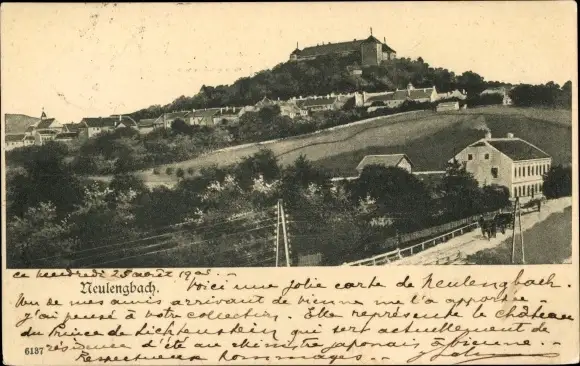 ce vendredi 25 août 1905. –
Neulengbach.
Voici une jolie carte de Neulengbach.
Un de mes amis arrivant de Vienne me l'a apportée
j'ai pensé à votre collection. Elle représente le château
du Prince de Lichtenstein qui sert actuellement de
résidence d'été au ministre japonais à Vienne. –
6137
Respectueux hommages. –